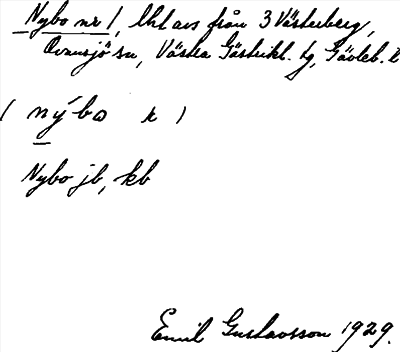 Nybo nr 1, lht avs från 3 Västerberg,
Ovansjö sn, Västra Gästrikl. tg, Gävleb. l
( nýbo r )
Nybo jb, kb
Emil Gustavsson 1929.